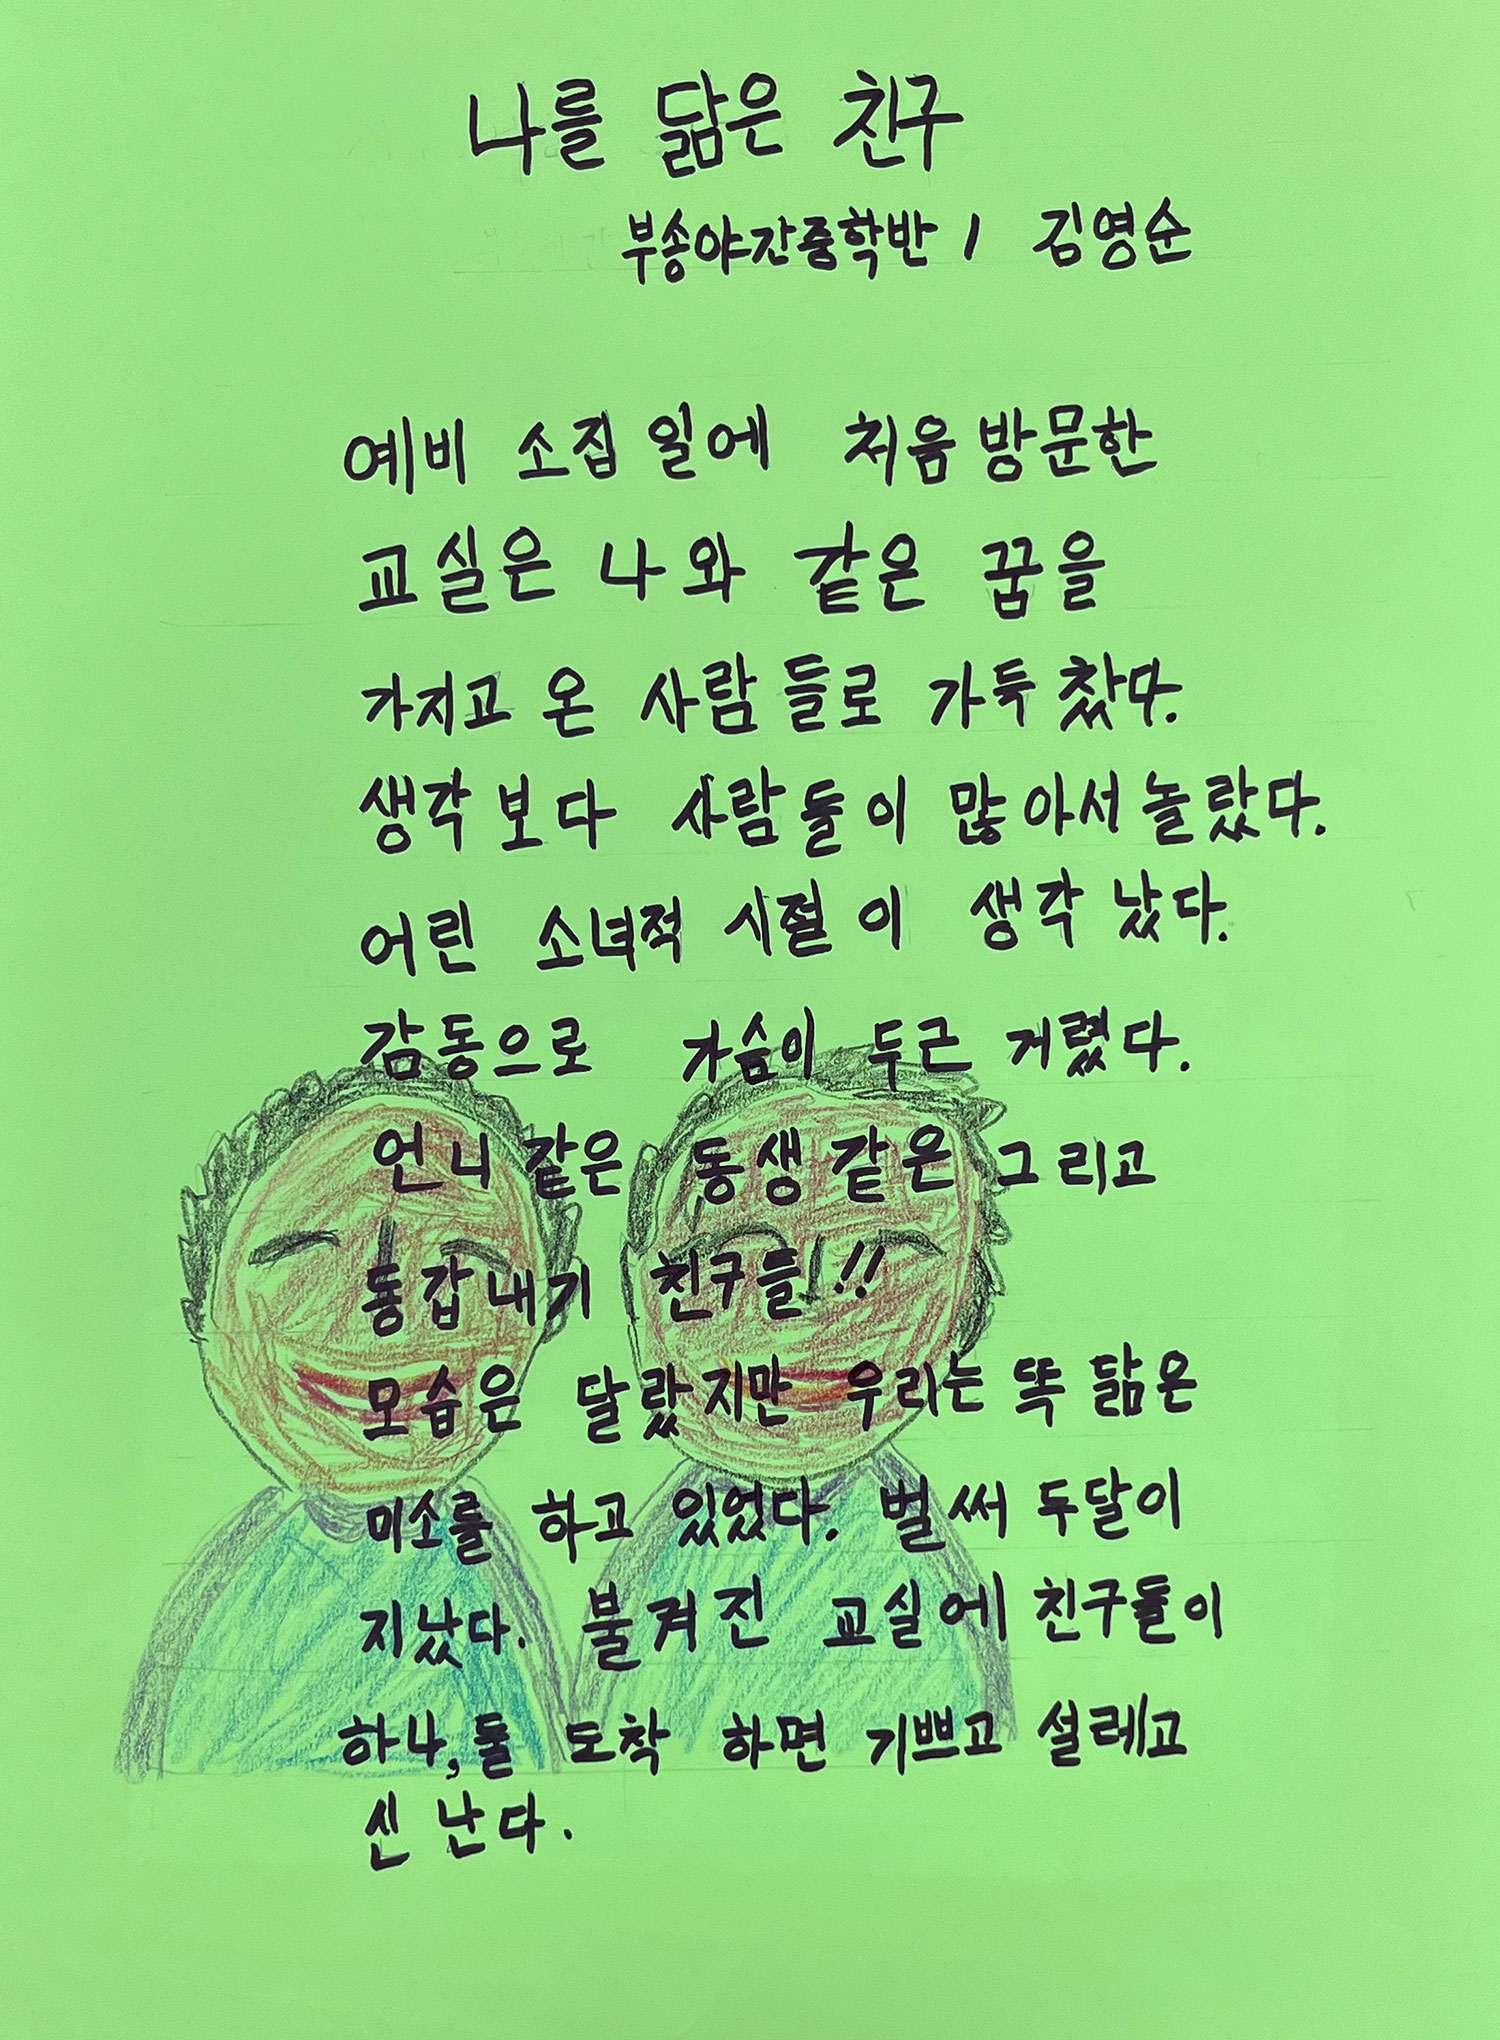 나를 닮은 친구
부송야간중학반 1 김영순
예비 소집일에 처음 방문한
교실은 나와 같은 꿈을
가지고 온 사람들로 가득 찼다.
생각보다 사람들이 많아서 놀랐다.
어린 소녀적 시절이 생각났다.
감동으로 가슴이 두근 거렸다.
언니같은 동생같은 그리고
동갑내기 친구들!!
모습은 달랐지만 우리는 똑 닮은
미소를 하고 있었다. 벌써 두달이
지났다. 불켜진 교실에 친구들이
하나,둘 도착 하면 기쁘고 설레고
신난다.